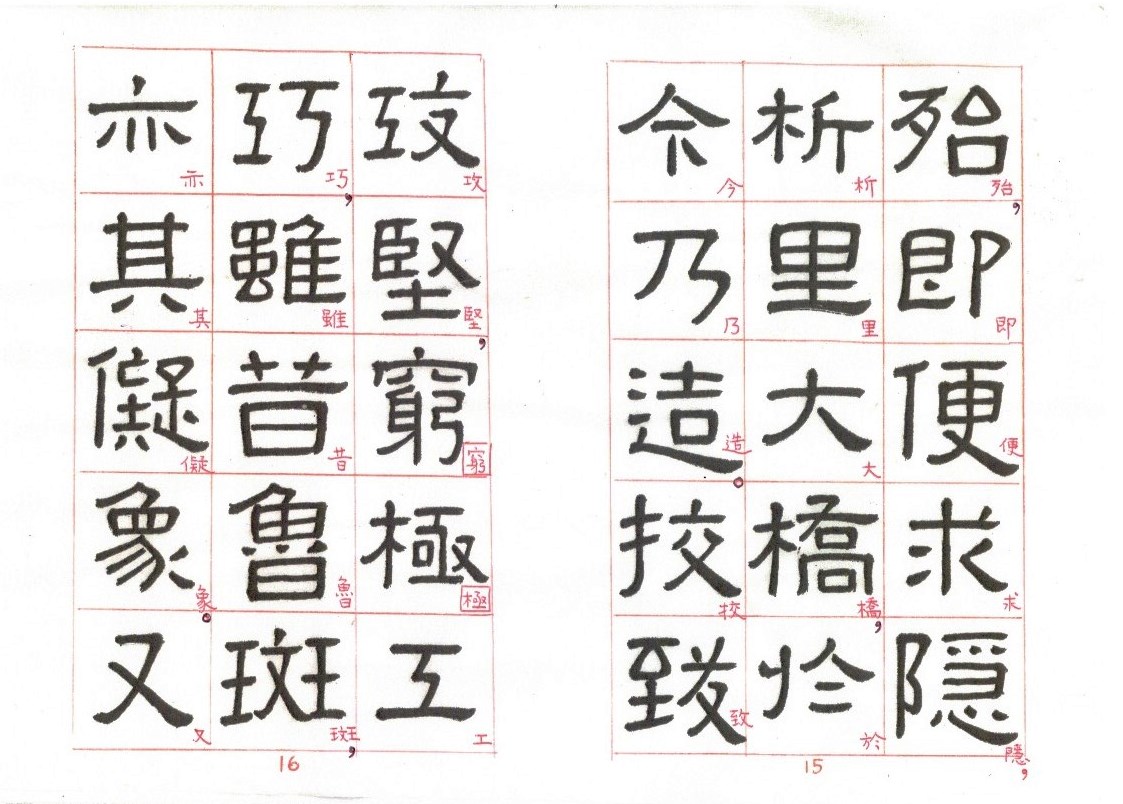 殆即便求隱
殆，即便求隱，
析里大橋於
析里大橋，於
今乃造挍致
今乃造。挍致
15
攻堅窮極工
攻堅，窮極工
巧雖昔魯斑
巧，雖昔魯斑，
亦其儗象又
亦其儗象。又
16